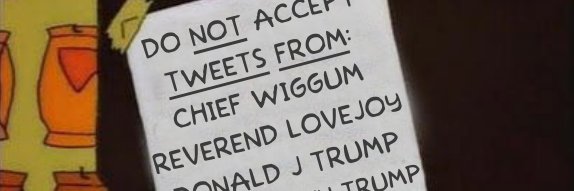 DO NOT ACCEPT
TWEETS FROM:
CHIEF WIGGUM
REVEREND LOVEJOY
DONALD J TRUMP
TRUMP